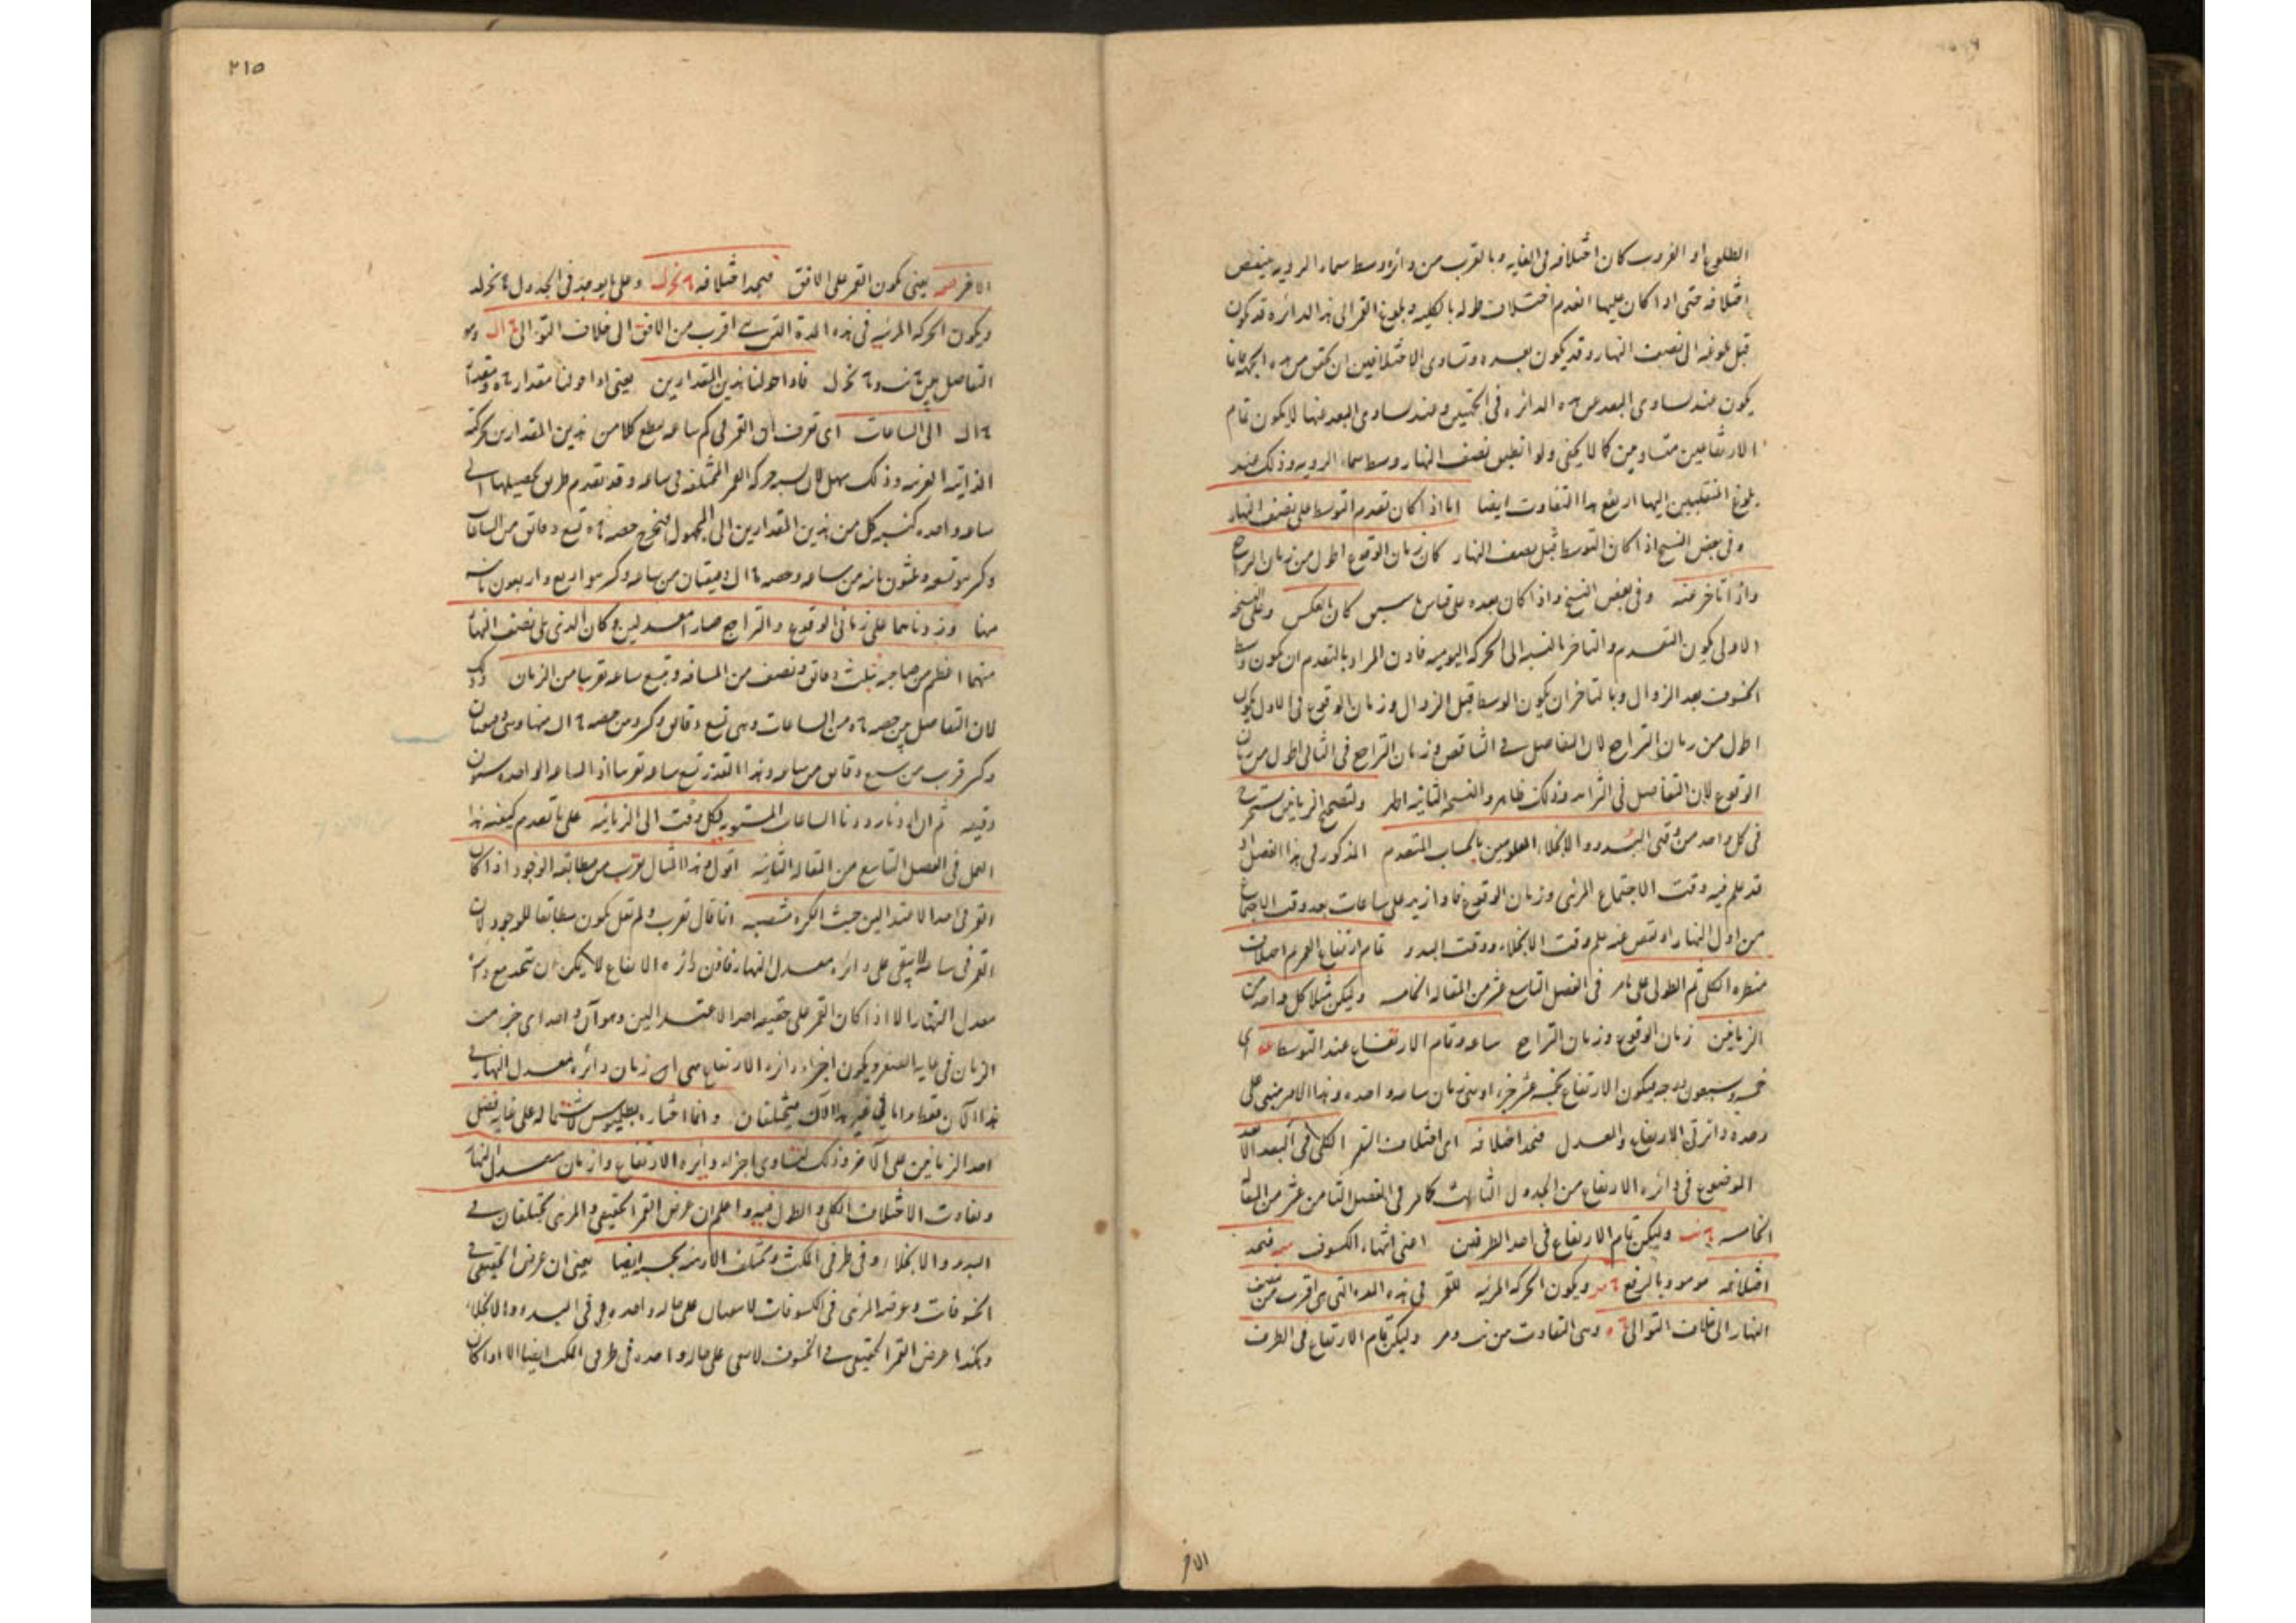 الطلوع او الغروب كان اختلافه فى الغايه وبالقرب من دائرة وسط سماء الرويه ينقص
اختلافه حتى اذا كان عليها انعدم اختلاف طوله بالكليه وبلوغ القمر الى هذه الدائرة قد يكون
قبل بلوغه الى نصف النهار وقد يكون بعده وتساوى الاختلافين ان تحقق من هذه الجهة فانما
يكون عند تساوى البعد عن هذه الدائره فى الجهتين وعند تساوى البعد عنها لا يكون تمام
الارتفاعين متساويين كما لا يخفى ولو انطبق نصف النهار وسط سماء الرويه وذلك عند
بلوغ المنقلبين اليها ارتفع هذا التفاوت ايضا اما اذا كان تقدم التوسط على نصف النهار
وفى بعض النسخ اذا كان التوسط قبل نصف النهار كان زمان الوقوع اطول من زمان التراجع
واذا تاخر عنه وفى بعض النسخ واذا كان بعده على قياس ما سبق كان بالعكس وعلى النسخه
الاولى يكون التقدم والتاخر بالنسبه الى الحركه اليوميه فاذن المراد بالتقدم ان يكون وسط
الخسوف بعد الزوال وبالتاخر ان يكون الوسط قبل الزوال وزمان الوقوع فى الاول يكون
اطول من زمان التراجع لان التفاضل فى التناقص وزمان التراجع فى الثانى اطول من زمان
الوقوع لان التفاضل فى التزايد وذلك ظاهر والنسخه الثانيه اظهر ولتصحيح الزمانين نستخرج
فى كل واحد من وقتى البدو والانجلاء المعلومين بالحساب المتقدم المذكور فى هذا الفصل اذ
قد علم فيه وقت الاجتماع المرئى وزمان الوقوع فاذا زيد على ساعات بعد وقت الاجتماع
من اول النهار او نقص عنه علم وقت الانجلاء ووقت البدو تمام ارتفاع القمر ثم اختلاف
منظره الكلى ثم الطولى على ما مر فى الفصل التاسع عشر من المقاله الخامسه وليكن مثلا كل واحد من
الزمانين زمان الوقوع وزمان التراجع ساعه وتمام الارتفاع عند التوسط عه اى
خمسه وسبعون درجه فيكون الارتفاع خمسه عشر جزءا وزمان ساعه واحده وهذا الامر مبنى على
وحدة دائرتى الارتفاع والمعدل فنجد اختلافه اى اختلاف القمر الكلى فى البعد الابعد
الموضوع فى دائره الارتفاع من الجدول الثالث كما مر فى الفصل الثامن عشر من المقاله
الخامسه وليكن تمام الارتفاع فى احد الطرفين اعنى انتهاء الكسوف فنجد
اختلافه وهو بالرفع ويكون الحركه المرئيه للقمر فى هذه المده التى هى اقرب من نصف
النهار الى خلاف التوالى وهى التفاوت من وليكن تمام الارتفاع فى الطرف
الاخر
٢١٥
الاخر يعنى يكون القمر على الافق فنجد اختلافه وعلى ما يوجد فى الجدول
ويكون الحركه المرئيه فى هذه المدة التى هى اقرب من الافق الى خلاف التوالى وهو
التفاضل بين فاذا حولنا هذين المقدارين يعنى اذا حولنا مقدار ومقدار
الى الساعات اى تعرف ان القمر فى كم ساعه يقطع كلا من هذين المقدارين بحركته
الذاتيه وذلك سهل لان نسبه حركه القمر المختلفه فى ساعه وقد تقدم طريق تحصيلها الى
ساعه واحده كنسبه كل من هذين المقدارين الى المجهول فيخرج حصه تسع دقائق من الساعات
وكسر هو تسعه وثلثون ثانيه من ساعه وحصه دقيقتان من ساعه وكسر هو اربع واربعون ثانيه
منها وزدناهما على زمانى الوقوع والتراجع صارا معدلين وكان الذى يلى نصف النهار
منهما اعظم من صاحبه بثلث دقائق ونصف من المسافه وتسع ساعه تقريبا من الزمان وذلك
لان التفاضل بين حصه من الساعات وهى تسع دقائق وكسر ومن حصه منها وهى دقيقتان
وكسر قريب من سبع دقائق من ساعه وهذا القدر تسع ساعه تقريبا اذ الساعه الواحده ستون
دقيقه ثم ان اردنا رددنا الساعات المستويه لكل وقت الى الزمانيه على ما تقدم كيفيه هذا
العمل فى الفصل التاسع من المقاله الثانيه اقول وهذا المثال يقرب من مطابقه الوجود اذا كان
القمر فى احد الاعتدالين حيث الكرة منتصبه انما قال يقرب ولم يقل يكون مطابقا للوجود لان
القمر فى ساعه لا يبقى على دائره معدل النهار فاذن دائره الارتفاع لا يمكن ان تتحد مع دائره
معدل النهار الا اذا كان القمر على حقيقه احد الاعتدالين وهو آن واحد اى جزء من
الزمان فى غايه الصغر ويكون اجزاء دائره الارتفاع هى ازمان دائره معدل النهار فى
هذا الآن فقط واما فى غير هذا الآن فيختلفان وانما اختاره بطلميوس لاشتماله على غايه فضل
احد الزمانين على الآخر وذلك لتساوى اجزاء دائره الارتفاع وازمان معدل النهار
وتفاوت الاختلاف الكلى والطولى فيه واعلم ان عرض القمر الحقيقى والمرئى يختلفان فى
البدو والانجلاء وفى طرفى المكث ويختلف الازمنه بحسبه ايضا يعنى ان عرض الحقيقى فى
الخسوفات وعرضه المرئى فى الكسوفات لا يبقيان على حاله واحده فى البدو والانجلاء
وهكذا عرض القمر الحقيقى فى الخسوف لا يبقى على حاله واحده فى طرفى المكث ايضا الا اذا كان